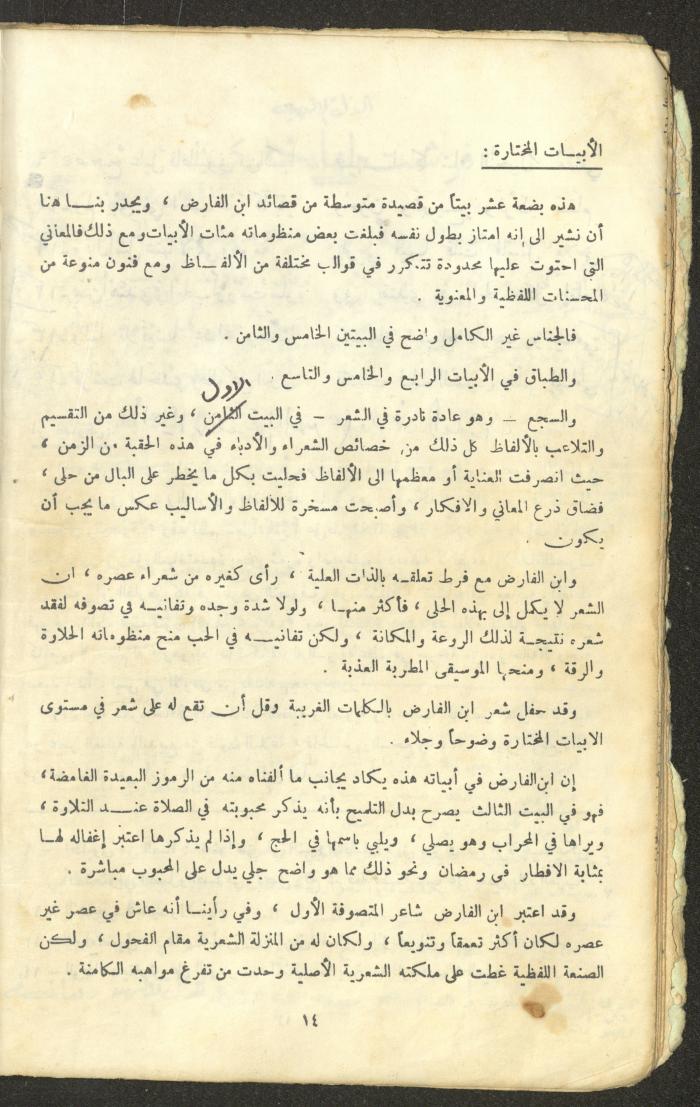 الأبيات المختارة :
هذه بضعة عشر بيتاً من قصيدة متوسطة من قصائد ابن الفارض ، ويجدر بنا هنا
أن نشير الى إنه امتاز بطول نفسه فبلغت بعض منظوماته مئات الأبيات ومع ذلك فالمعاني
التي احتوت عليها محدودة تتكرر في قوالب مختلفة من الألفاظ ومع فنون منوعة من
المحسنات اللفظية والمعنوية .
فالجناس غير الكامل واضح في البيتين الخامس والثامن .
والطباق في الأبيات الرابع والخامس والتاسع .
الاول
والسجع – وهو عادة نادرة في الشعر – في البيت الثامن ، وغير ذلك من التقسيم
والتلاعب بالألفاظ كل ذلك من خصائص الشعراء والأدباء في هذه الحقبة من الزمن ،
حيث انصرفت العناية أو معظمها الى الألفاظ فحليت بكل ما يخطر على البال من حلى ،
فضاق ذرع المعاني والافكار ، وأصبحت مسخرة للألفاظ والأساليب عكس ما يجب أن
يكون .
وابن الفارض مع فرط تعلقه بالذات العلية ، رأى كغيره من شعراء عصره ، ان
الشعر لا يكمل إلى بهذه الحلى ، فأكثر منها ، ولولا شدة وجده وتفانيه في تصوفه لفقد
شعره نتيجة لذلك الروعة والمكانة ، ولكن تفانيه في الحب منح منظوماته الحلاوة
والرقة ، ومنحها الموسيقى المطربة العذبة .
وقد حفل شعر ابن الفارض بالكلمات الغريبة وقل أن تقع له على شعر في مستوى
الابيات المختارة وضوحاً وجلاء .
إن ابن الفارض في أبياته هذه يكاد يجانب ما ألفناه منه من الرموز البعيدة الغامضة ،
فهو في البيت الثالث يصرح بدل التلميح بأنه يذكر محبوبته في الصلاة عند التلاوة ،
ويراها في المحراب وهو يصلي ، ويلبي باسمها في الحج ، وإذا لم يذكرها اعتبر إغفاله لها
بمثابة الافطار في رمضان ونحو ذلك مما هو واضح جلي يدل على المحبوب مباشرة .
وقد اعتبر ابن الفارض شاعر المتصوفة الأول ، وفي رأينا أنه عاش في عصر غير
عصره لكان أكثر تعمقاً وتنويعاً ، ولكان له من المنزلة الشعرية مقام الفحول ، ولكن
الصنعة اللفظية غطت على ملكته الشعرية الأصلية وحدت من تفرغ مواهبه الكامنة .
١٤